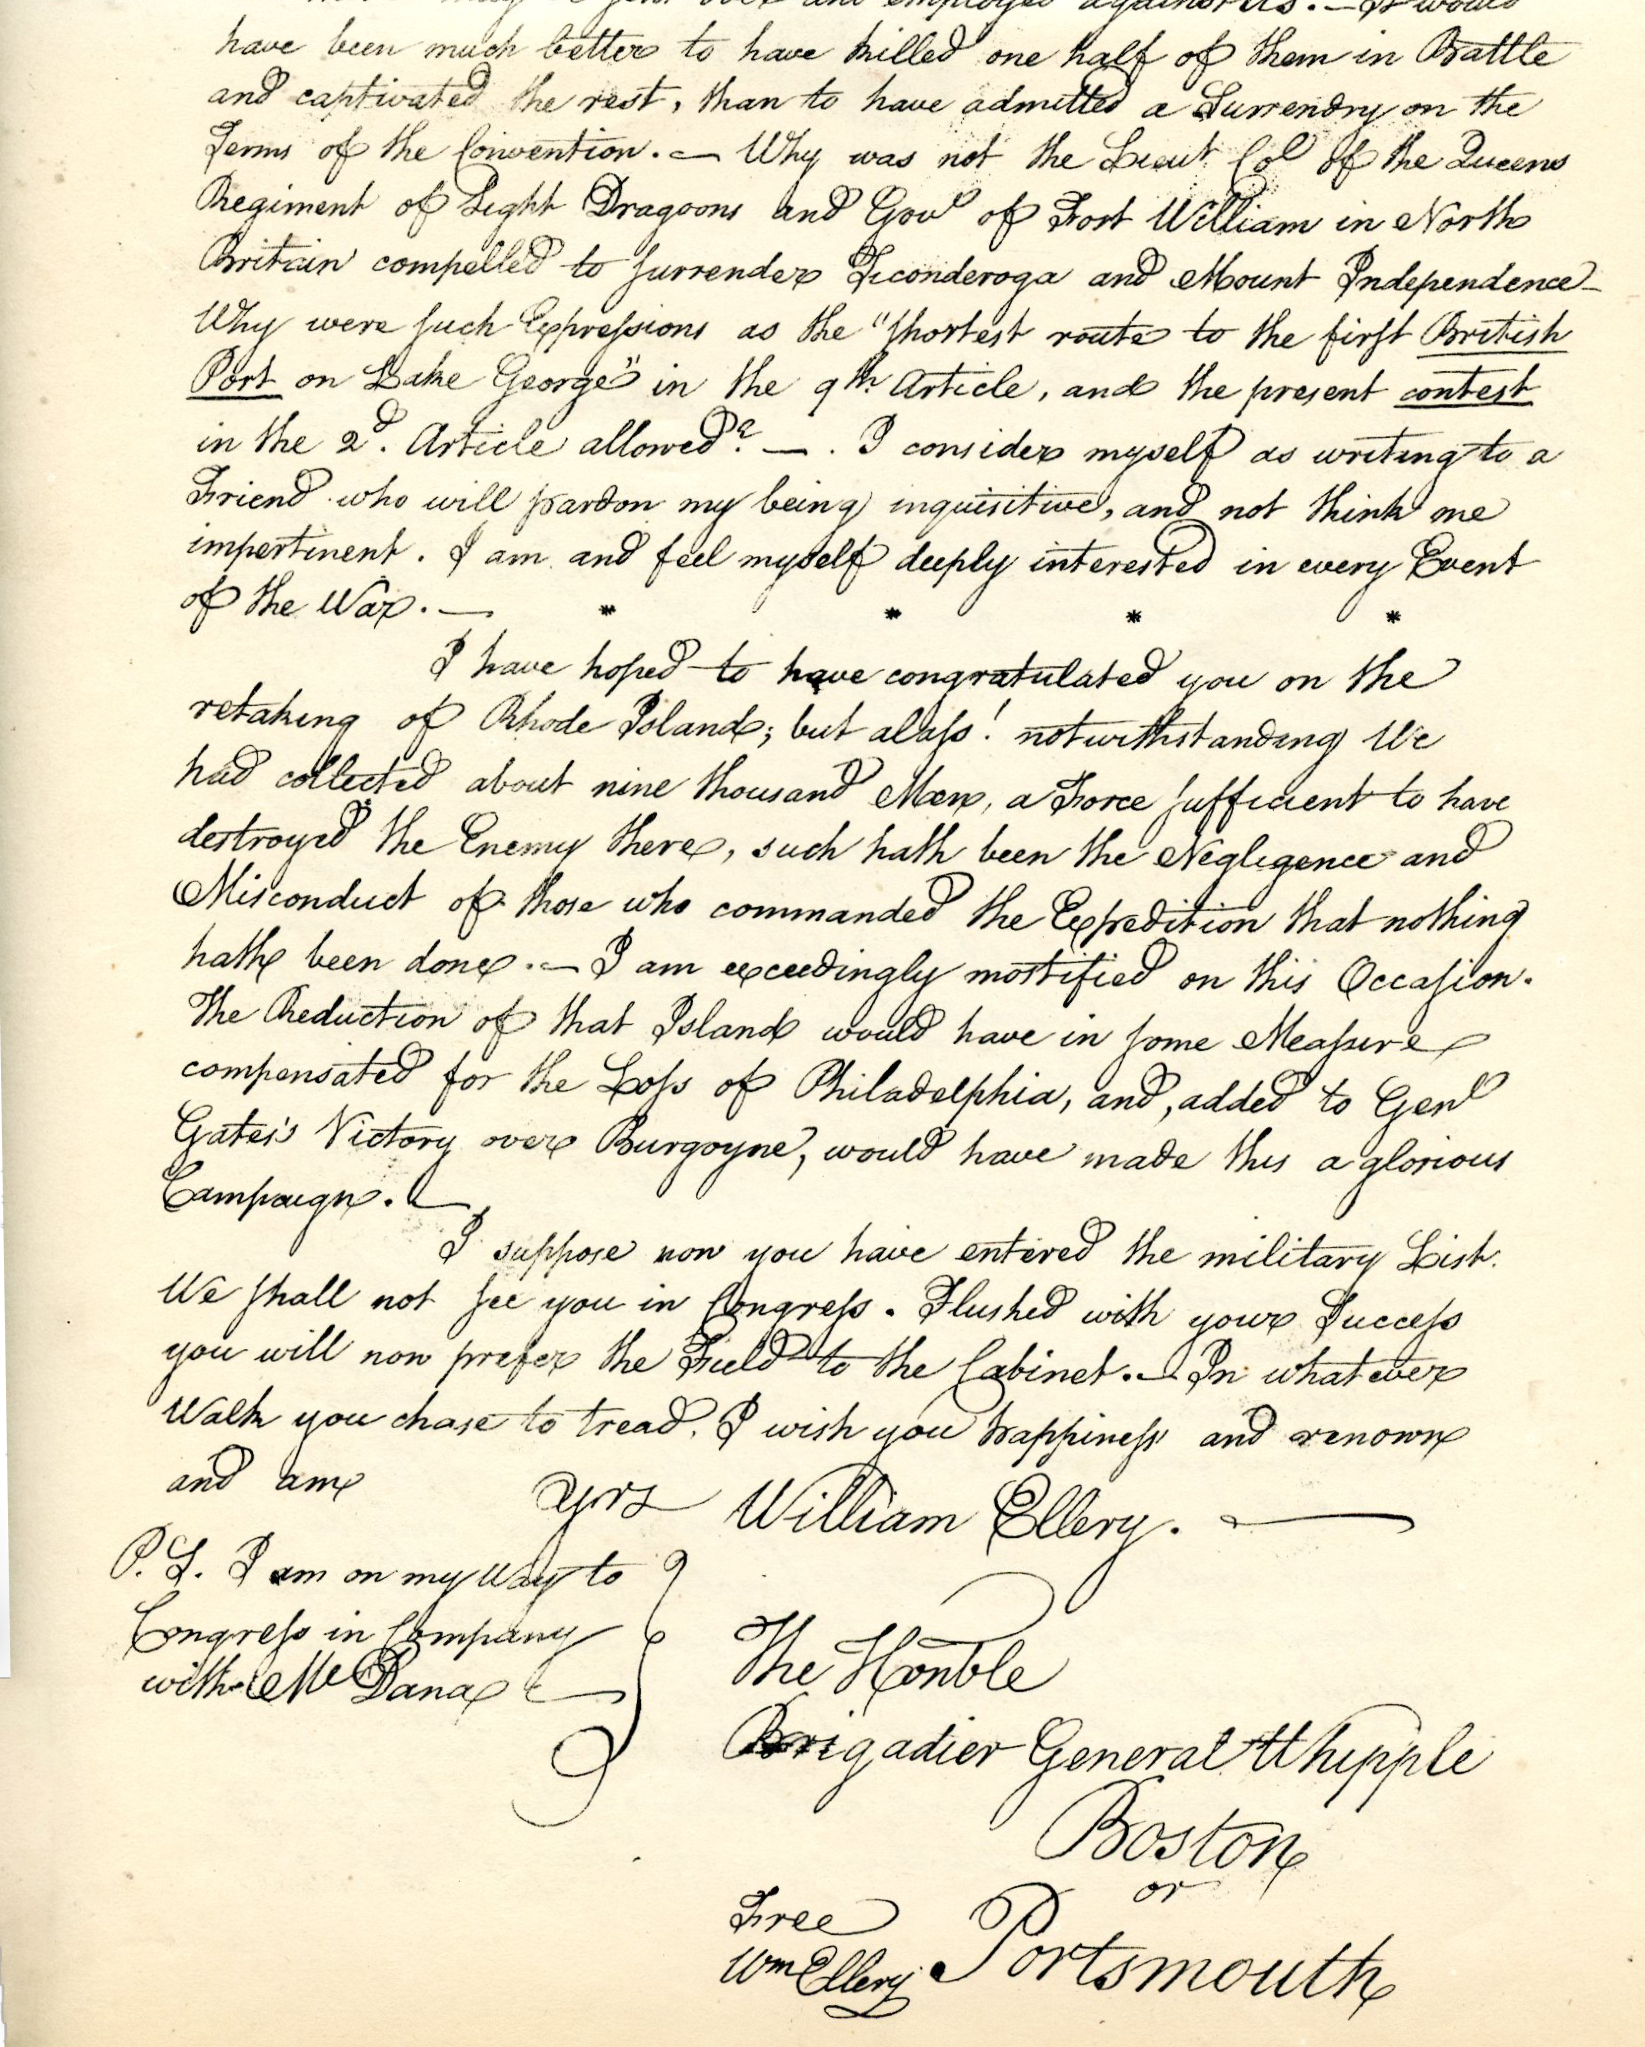 employed against us. — It would
have been much better to have killed one half of them in Battle
and captivated the rest, than to have admitted a Surrendry on the
Terms of the Convention. — Why was not the Lieut Col of the Queens
Regiment of Light Dragoons and Govr of Fort William in North
Britain compelled to surrender Ticonderoga and Mount Independence—
Why were such Expressions as the "shortest route to the first British
Port on Lake George" in the 9th Article, and the present contest
in the 2d. Article allowed? — . I consider myself as writing to a
Friend who will pardon my being inquisitive, and not think me
impertinent. I am and feel myself deeply interested in every Event
of the War. — * * * *
I have hoped to have congratulated you on the
retaking of Rhode Island; but alass! notwithstanding We
had collected about nine thousand Men, a Force sufficient to have
destroyed the Enemy there, such hath been the Negligence and
Misconduct of those who commanded the Expedition that nothing
hath been done. — I am exceedingly mortified on this Occasion.
The Reduction of that Island would have in some Measure
compensated for the Loss of Philadelphia, and, added to Genl
Gates's Victory over Burgoyne, would have made this a glorious
Campaign. —
I suppose now you have entered the military List.
We shall not see you in Congress. Flushed with your Success
you will now prefer the Field to the Cabinet. — In whatever
Walk you chase to tread, I wish you happiness and renown
and am yrs William Ellery. —
P. S. I am on my way to
Congress in Company
with Mr Dana —
The Honble
Brigadier General Whipple
Boston
or
Portsmouth
Free
Wm Ellery